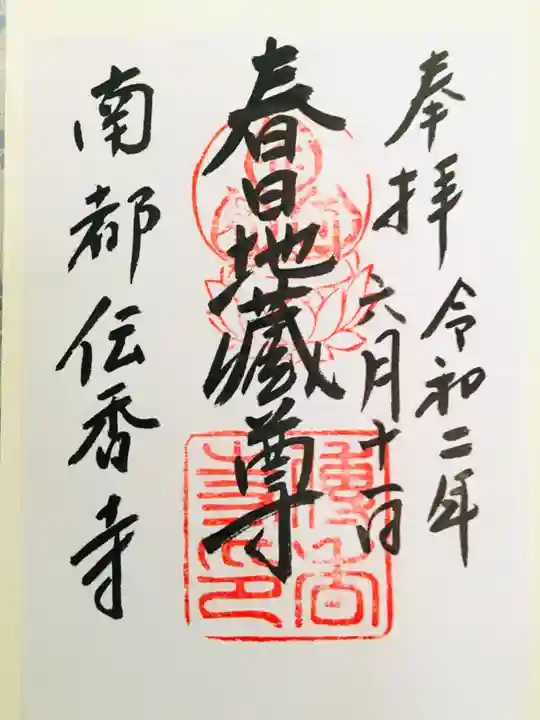 奉拝
令和二年
六月十一日
春日地蔵尊
南都伝香寺
傳香寺印